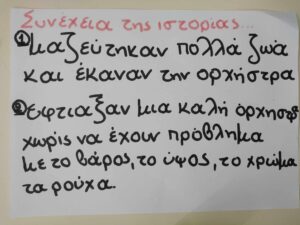 Συνέχεια της ιστορίας...
① Μαζεύτηκαν πολλά ζωά
και έκαναν την ορχήστρα
② Εφτιαξαν μια καλή ορχηστρ
χωρίς να έχουν πρόβλημα
με το βάρος, το ύψος, το χρώμα
τα ρούχα.